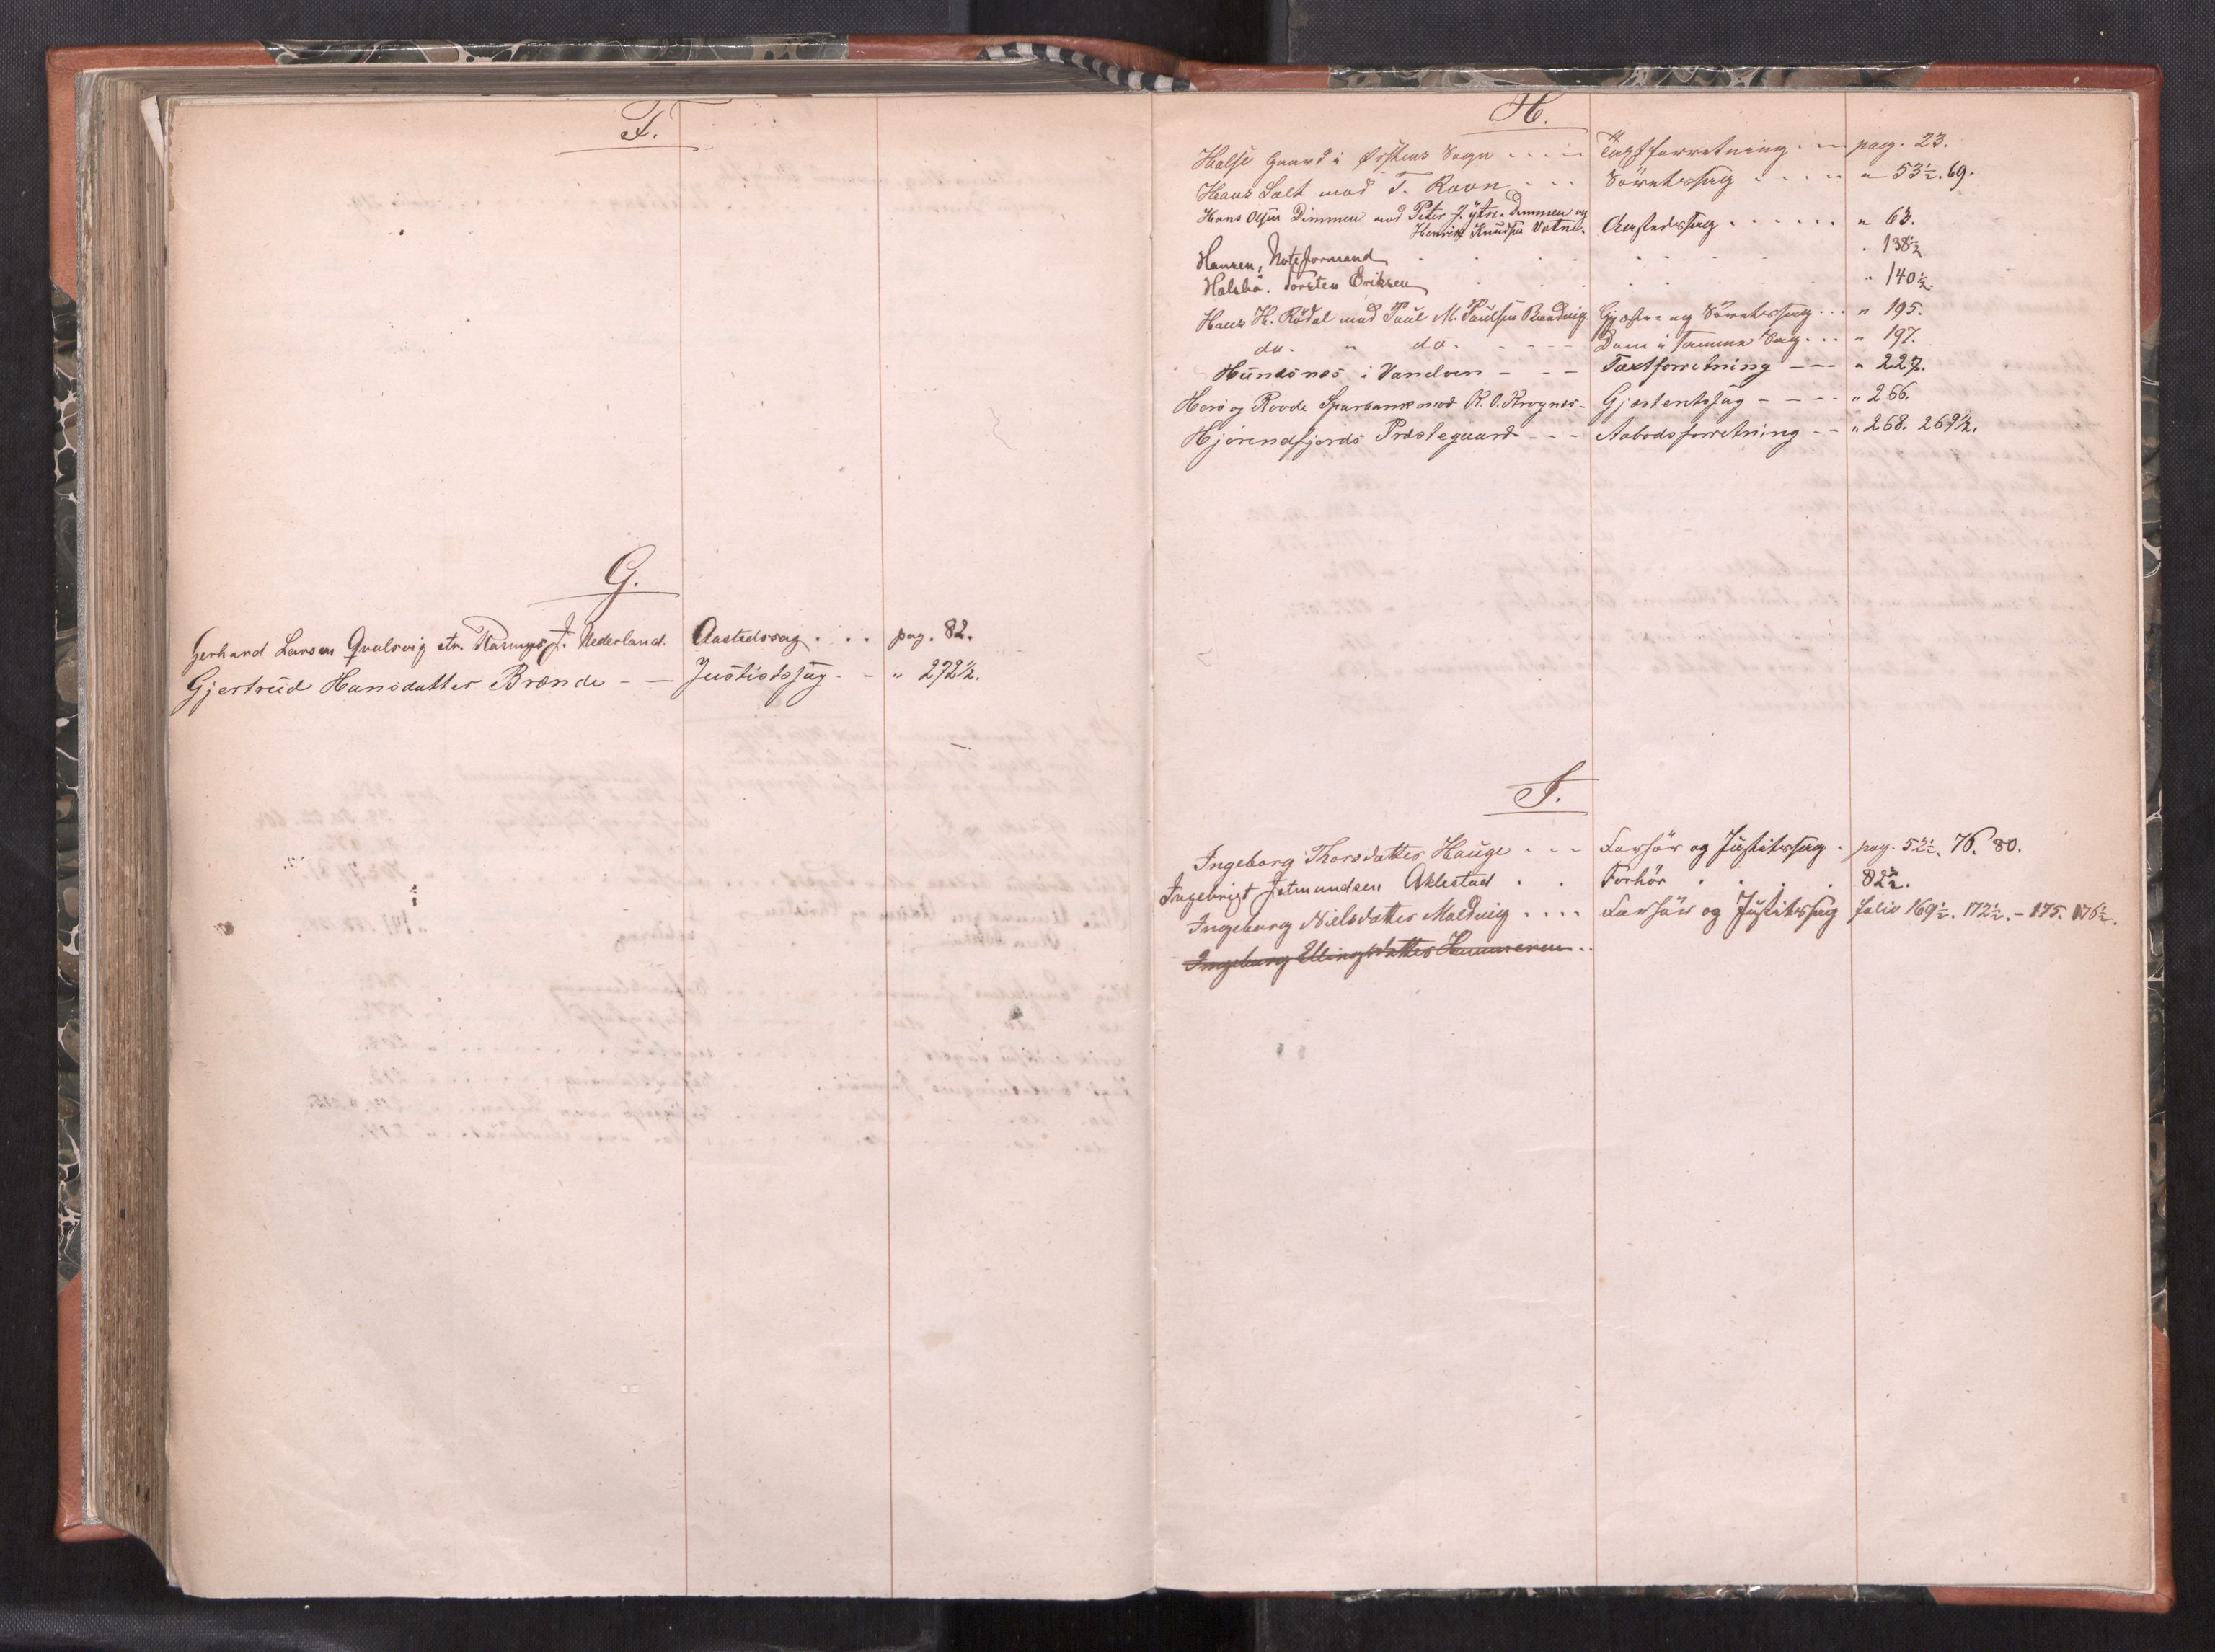 F.
G.
Gerhard Larsen Qvalsvig ctr. Rasmus J. Nederland. Aastedssag . . . pag. 82.
Gjertrud Hansdatter Brænde - - Justitssag - - " 272½.
H.
Halse Gaard i Ørstens Sogn . . . . Taxtforretning . . . pag. 23.
Hans Salt mod T. Ravn . . . Søretssag . . . . " 53½. 69.
Hans Olsen Dimmen mod Peter J. Ytre-Dimmen og
Henrik Knudsen Vatne. Aastedssag . . . . . . " 63.
Hansen, Noteformand . . . . . . . . " 138½
Halsbø. Torsten Eriksen . . . . . . . . " 140½.
Hans H. Rødal mod Paul M. Paulsen Gjeste- og Søretssag . . . " 195.
do. " do. - - - - Dom i samme Sag . . . " 197.
Hundsnes i Vanelven - - - Taxtforretning - - - " 227.
Herø og Rovde Sparbank mod R. O. Gjesteretssag - - - - " 266.
Hjørendfjords Præstegaard - - - Aabodsforretning - - " 268. 269½.
I.
Ingeborg Thorsdatter Hauge . . . Forhør og Justitssag . pag. 52½. 76. 80.
Ingebrigt Jetmundsen Aklestad . . Forhør . . . . 82½.
Ingeborg Nielsdatter Moldvig . . . . Forhør og Justitssag folio 169½. 172½. - 175. 176½.
Ingeborg Ellingsdatter . .